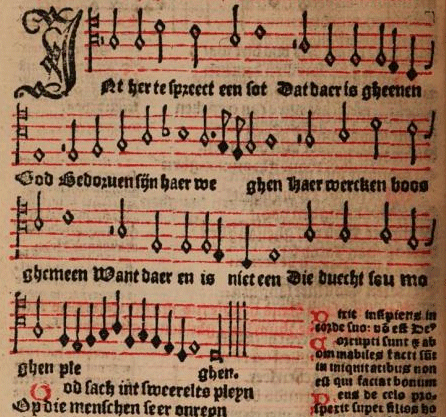 INt herte spreect een sot Dat daer is gheenen
God Bedoruen sijn haer we ghen Haer wercken boos
ghemeen Want daer en is niet een Die duecht sou mo
ghen ple ghen.
God sach int sweerelts pleyn
Op die menschen seer onreyn
Dixit insipiens in
corde suo: nō est De⁹
Corrupti sunt & ab
ominabiles facti sūt
in iniquitatibus non
est qui faciat bonum
Deus de celo pro-
spexit super filios ho